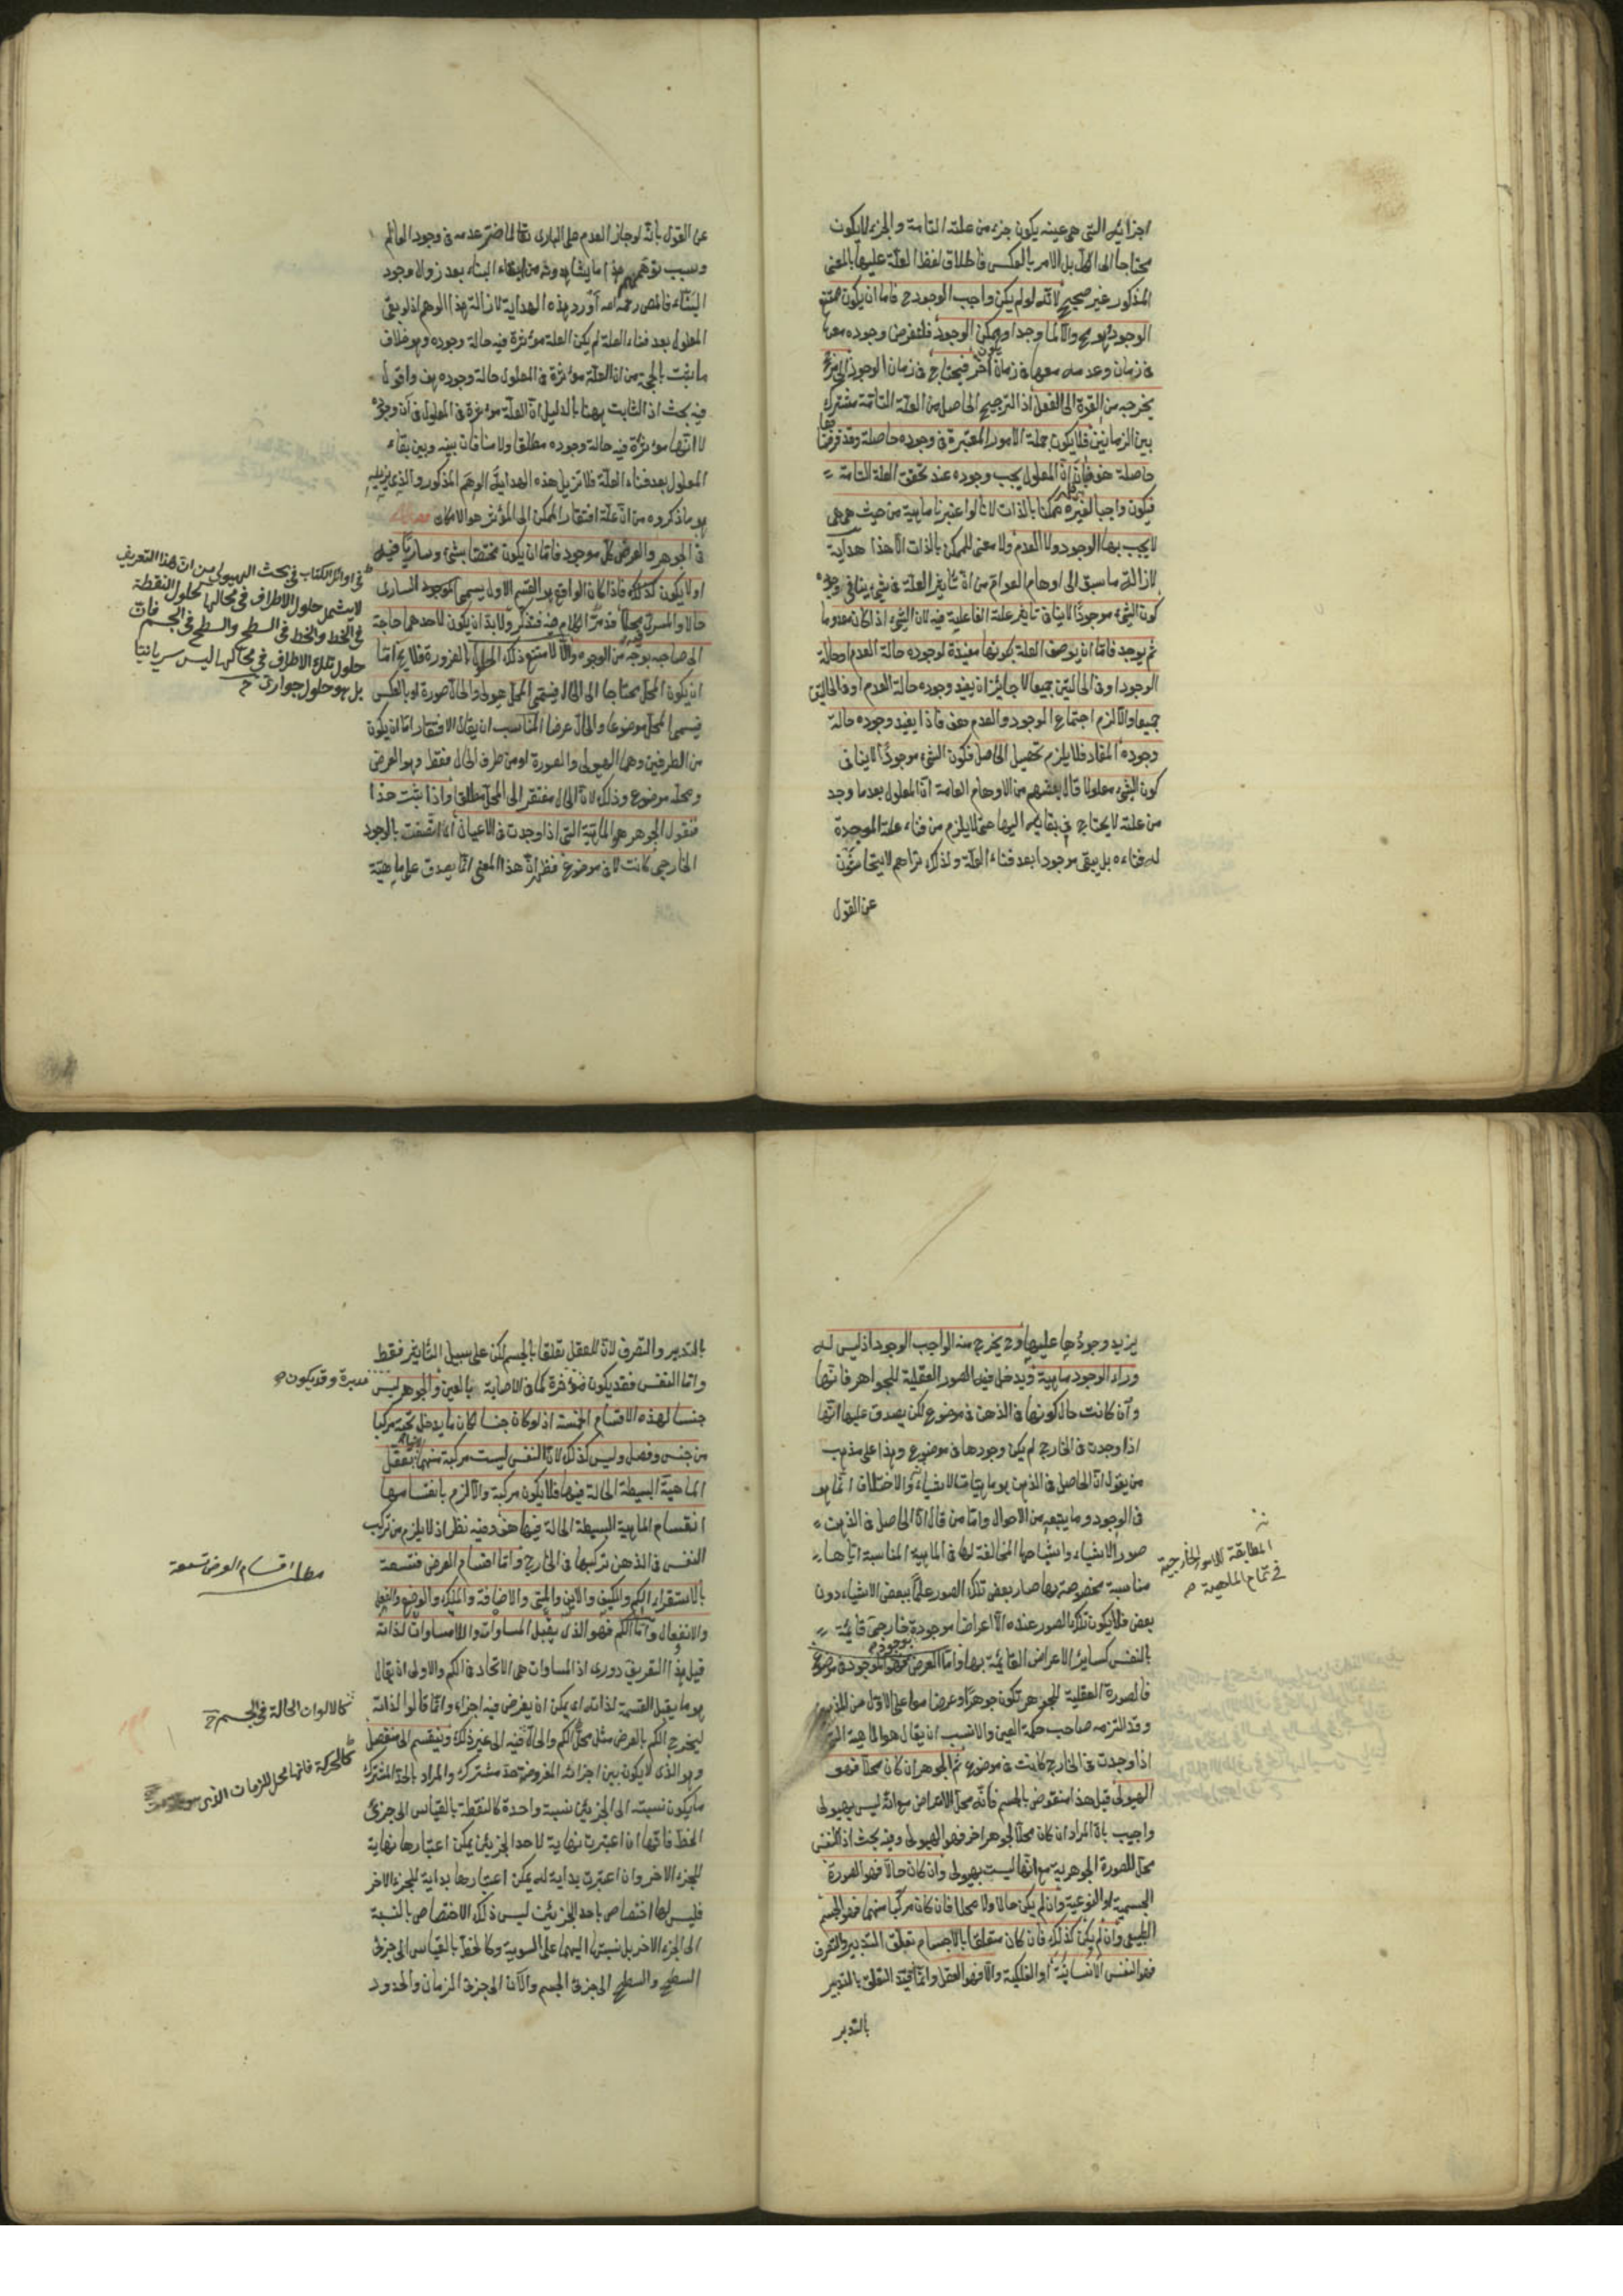 اجزائه التى هى عينه يكون جزء من علته التامة والجزء لا يكون
محتاجا الى الكل بل الامر بالعكس فاطلاق لفظ العلة عليها بالمعنى
المذكور غير صحيح لانه لو لم يكن واجب الوجود ح فاما ان يكون ممتنع
الوجود وهو مح والا لما وجد او ممكن الوجود فلنفرض وجوده معها
فى زمان وعدمه معها فى زمان آخر فيحتاج فى زمان الوجود الى مرجح
يخرجه من القوة الى الفعل اذ الترجيح الحاصل من العلة التامة مشترك
بين الزمانين فلا يكون جملة الامور المعتبرة فى وجوده حاصلة وقد فرضناها
حاصلة هف فبان ان المعلول يجب وجوده عند تحقق العلة التامة
فيكون واجبا لغيره ممكنا بالذات لانا لو اعتبرنا ماهيته من حيث هى هى
لا يجب بها الوجود ولا العدم ولا معنى للممكن بالذات الا هذا هداية
لازالة ما سبق الى اوهام العوام من ان تأثير العلة فى شئ ينافى وجوده
كون الشئ موجودا لا ينافى تأثير علته الفاعلية فيه لان الشئ اذا كان معدوما
ثم يوجد فاما ان يوصف العلة بكونها مفيدة لوجوده حالة العدم او حالة
الوجود او فى الحالتين جميعا لا جائز ان يفيد وجوده حالة العدم او فى الحالتين
جميعا والا لزم اجتماع الوجود والعدم هف فاذا يفيد وجوده حالة
وجوده المفاد فلا يلزم تحصيل الحاصل فكون الشئ موجودا لا ينافى
كون الشئ معلولا قال بعضهم من الاوهام العامة ان المعلول بعد ما وجد
من علته لا يحتاج فى بقائه اليها حتى لا يلزم من فناء علته الموجدة
له فناءه بل يبقى موجودا بعد فناء العلة ولذلك تراهم لا يتحاشون
عن القول
عن القول بانه لو جاز العدم على البارى تعالى لما ضر عدمه فى وجود العالم
وسبب توهمهم هذا ما يشاهدونه من بقاء البناء بعد زوال وجود
البناء فالمص رحمه الله اورد هذه الهداية لازالة هذا الوهم اذ لو بقى
المعلول بعد فناء العلة لم يكن العلة مؤثرة فيه حالة وجوده وهو خلاف
ما ثبت بالحجة من ان العلة مؤثرة فى المعلول حالة وجوده هف واقول
فيه بحث اذ الثابت ههنا بالدليل ان العلة مؤثرة فى المعلول فى آن وجوده
لا انها مؤثرة فيه حالة وجوده مطلقا ولا منافات بينه وبين بقاء
المعلول بعد فناء العلة فلا تزيل هذه الهداية الوهم المذكور والذى يزيله
هو ما ذكروه من ان علة افتقار الممكن الى المؤثر هو الامكان فصل
فى الجوهر والعرض كل موجود فاما ان يكون مختصا بشئ وساريا فيه
او لا يكون كذلك فاذا كان الواقع هو القسم الاول يسمى الموجود السارى
حالا والمسرى محلا قد مر الكلام فيه فتذكر ولا بد ان يكون لاحدهما حاجة
الى صاحبه بوجه من الوجوه والا لامتنع ذلك الحلول بالضرورة فلا يخ اما
ان يكون المحل محتاجا الى الحال فيسمى المحل هيولى والحال صورة او بالعكس
فيسمى المحل موضوعا والحال عرضا المناسب ان يقال الافتقار اما ان يكون
من الطرفين وهما الهيولى والصورة او من طرف الحال فقط وهو العرض
ومحله موضوع وذلك لان الحال مفتقر الى المحل مطلقا واذا ثبت هذا
فنقول الجوهر هو الماهية التى اذا وجدت فى الاعيان اى اتصفت بالوجود
الخارجى كانت لا فى موضوع فظهر ان هذا المعنى انما يصدق على ماهية
فى اوائل الكتاب فى بحث الهيولى من ان هذا التعريف
لا يشمل حلول الاطراف فى محالها كحلول النقطة
فى الخط والخط فى السطح والسطح فى الجسم فان
حلول تلك الاطراف فى محالها ليس سريانيا
بل هو حلول جوارى
يزيد وجودها عليها وح يخرج منه الواجب الوجود اذ ليس له
وراء الوجود ماهية ويدخل فيه الصور العقلية للجواهر فانها
وان كانت حال كونها فى الذهن فى موضوع لكن يصدق عليها انها
اذا وجدت فى الخارج لم يكن وجودها فى موضوع وهذا على مذهب
من يقول ان الحاصل فى الذهن هو ماهيات الاشياء والاختلاف انما هو
فى الوجود وما يتبعه من الاحوال واما من قال ان الحاصل فى الذهن
صور الاشياء واشباحها المخالفة لها فى الماهية المناسبة اياها
مناسبة مخصوصة بها صار بعض تلك الصور علما ببعض الاشياء دون
بعض فلا يكون تلك الصور عنده الا اعراضا موجودة خارجى قائمة
بالنفس كسائر الاعراض القائمة بها واما العرض فهو الموجود فى موضوع
فالصورة العقلية للجوهر تكون جوهرا وعرضا معا على الاول من المذهبين
وقد التزمه صاحب حكمة العين والانسب ان يقال هو الماهية التى
اذا وجدت فى الخارج كانت فى موضوع ثم الجوهر ان كان محلا فهو
الهيولى قيل هذا منقوض بالجسم فانه محل الاعراض مع انه ليس بهيولى
واجيب بان المراد ان كان محلا لجوهر آخر فهو الهيولى وفيه بحث اذ النفس
محل للصورة الجوهرية مع انها ليست بهيولى وان كان حالا فهو الصورة
الجسمية او النوعية وان لم يكن حالا ولا محلا فان كان مركبا منهما فهو الجسم
الطبيعى وان لم يكن كذلك فان كان متعلقا بالاجسام تعلق التدبير والتصرف
فهو النفس الانسانية او الفلكية والا فهو العقل وانما قيد التعلق بالتدبير
بالتدبير
المطابقة للامور الخارجية
فى تمام الماهية
بالتدبير والتصرف لان للعقل تعلقا بالجسم لكن على سبيل التأثير فقط
واما النفس فقد يكون مؤثرة كما فى الاصابة بالعين والجوهر ليس
جنسا لهذه الاقسام الخمسة اذ لو كان جنسا لكان ما يدخل تحته مركبا
من جنس وفصل وليس كذلك لان النفس ليست مركبة منهما لانها تتعقل
الماهية البسيطة الحالة فيها فلا يكون مركبة والا لزم بانقسامها
انقسام الماهية البسيطة الحالة فيها هف وفيه نظر اذ لا يلزم من تركب
النفس فى الذهن تركبها فى الخارج واما اقسام العرض فتسعة
بالاستقراء الكم والكيف والاين والمتى والاضافة والملك والوضع والفعل
والانفعال واما الكم فهو الذى يقبل المساوات واللامساوات لذاته
قيل هذا التعريف دورى اذ المساوات هى الاتحاد فى الكم والاولى ان يقال
هو ما يقبل القسمة لذاته اى يمكن ان يفرض فيه اجزاء وانما قالوا لذاته
ليخرج الكم بالعرض مثل محل الكم والحال فيه الى غير ذلك وينقسم الى منفصل
وهو الذى لا يكون بين اجزائه المفروضة حد مشترك والمراد بالحد المشترك
ما يكون نسبته الى الجزئين نسبة واحدة كالنقطة بالقياس الى جزئى
الخط فانها ان اعتبرت نهاية لاحد الجزئين يمكن اعتبارها نهاية
للجزء الآخر وان اعتبرت بداية له يمكن اعتبارها بداية للجزء الآخر
فليس لها اختصاص باحد الجزئين ليس ذلك الاختصاص بالنسبة
الى الجزء الآخر بل نسبتها اليهما على السوية وكالخط بالقياس الى جزئى
السطح والسطح الى جزئى الجسم والآن الى جزئى الزمان والحدود
مدبرة وقد يكون
مطلب اقسام العرض تسعة
كالالوان الحالة فى الجسم
كالحركة فانها محل للزمان الذى